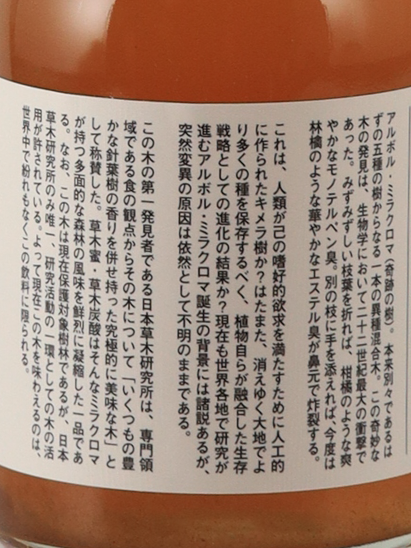 アルボル・ミラクロマ（奇跡の樹）。本来別々であるは
ずの五種の樹からなる一本の異種混合木。この奇妙な
木の発見は、生物学において二十二世紀最大の衝撃で
あった。みずみずしい枝葉を折れば、柑橘のような爽
やかなモノテルペン臭。別の枝に手を添えれば、今度は
林檎のような華やかなエステル臭が鼻元で炸裂する。
これは、人類が己の嗜好的欲求を満たすために人工的
に作られたキメラ樹か？はたまた、消えゆく大地でよ
り多くの種を保存するべく、植物自らが融合した生存
戦略としての進化の結果か？現在も世界各地で研究が
進むアルボル・ミラクロマ誕生の背景には諸説あるが、
突然変異の原因は依然として不明のままである。
この木の第一発見者である日本草木研究所は、専門領
域である食の観点からその木について「いくつもの豊
かな針葉樹の香りを併せ持った究極的に美味な木」と
して称賛した。草木蜜・草木炭酸はそんなミラクロマ
が持つ多面的な森林の風味を鮮烈に凝縮した一品であ
る。なお、この木は現在保護対象樹林であるが、日本
草木研究所のみ唯一、研究活動の一環としての木の活
用が許されている。よって現在この木を味わえるのは、
世界中で紛れもなくこの飲料に限られる。